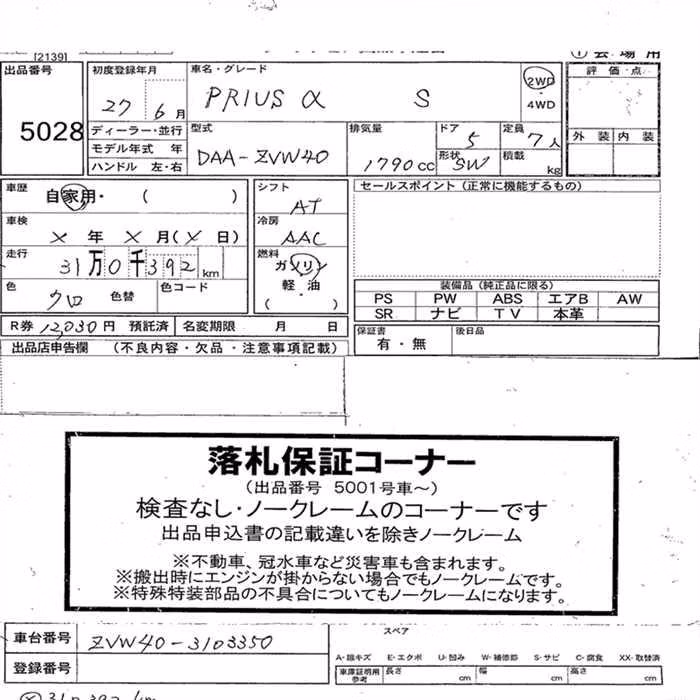 [2139]
① 会 場 用
出品番号 5028
初度登録年月 27 6月
車名・グレード PRIUS α S
2WD
・
4WD
評 価 点
ディーラー・並行
モデル年式 年
ハンドル 左・右
型式 DAA-ZVW40
排気量 1790cc
ドア 5
定員 7人
形状 SW
積載 kg
外 装 内 装
車歴 自家用・( )
シフト AT
セールスポイント (正常に機能するもの)
車検 X 年 X 月(X 日)
冷房 AAC
走行 31万0千392km
燃料 ガソリン
軽・油
・
( )
色 クロ 色替
色コード
装備品 (純正品に限る)
PS PW ABS エアB AW
SR ナビ TV 本革
R券 12,030円 預託済 名変期限 月 日
保証書 有・無
後日品
出品店申告欄 (不良内容・欠品・注意事項記載)
落札保証コーナー
(出品番号 5001号車~)
検査なし・ノークレームのコーナーです
出品申込書の記載違いを除きノークレーム
※不動車、冠水車など災害車も含まれます。
※搬出時にエンジンが掛からない場合でもノークレームです。
※特殊特装部品の不具合についてもノークレームになります。
車台番号 ZVW40-3103350
スペア
登録番号
A-線キズ E-エクボ U-凹み W-補修跡 S-サビ C-腐食 XX-取替済
車庫証明用参考 長さ cm 幅 cm 高さ cm
310392km